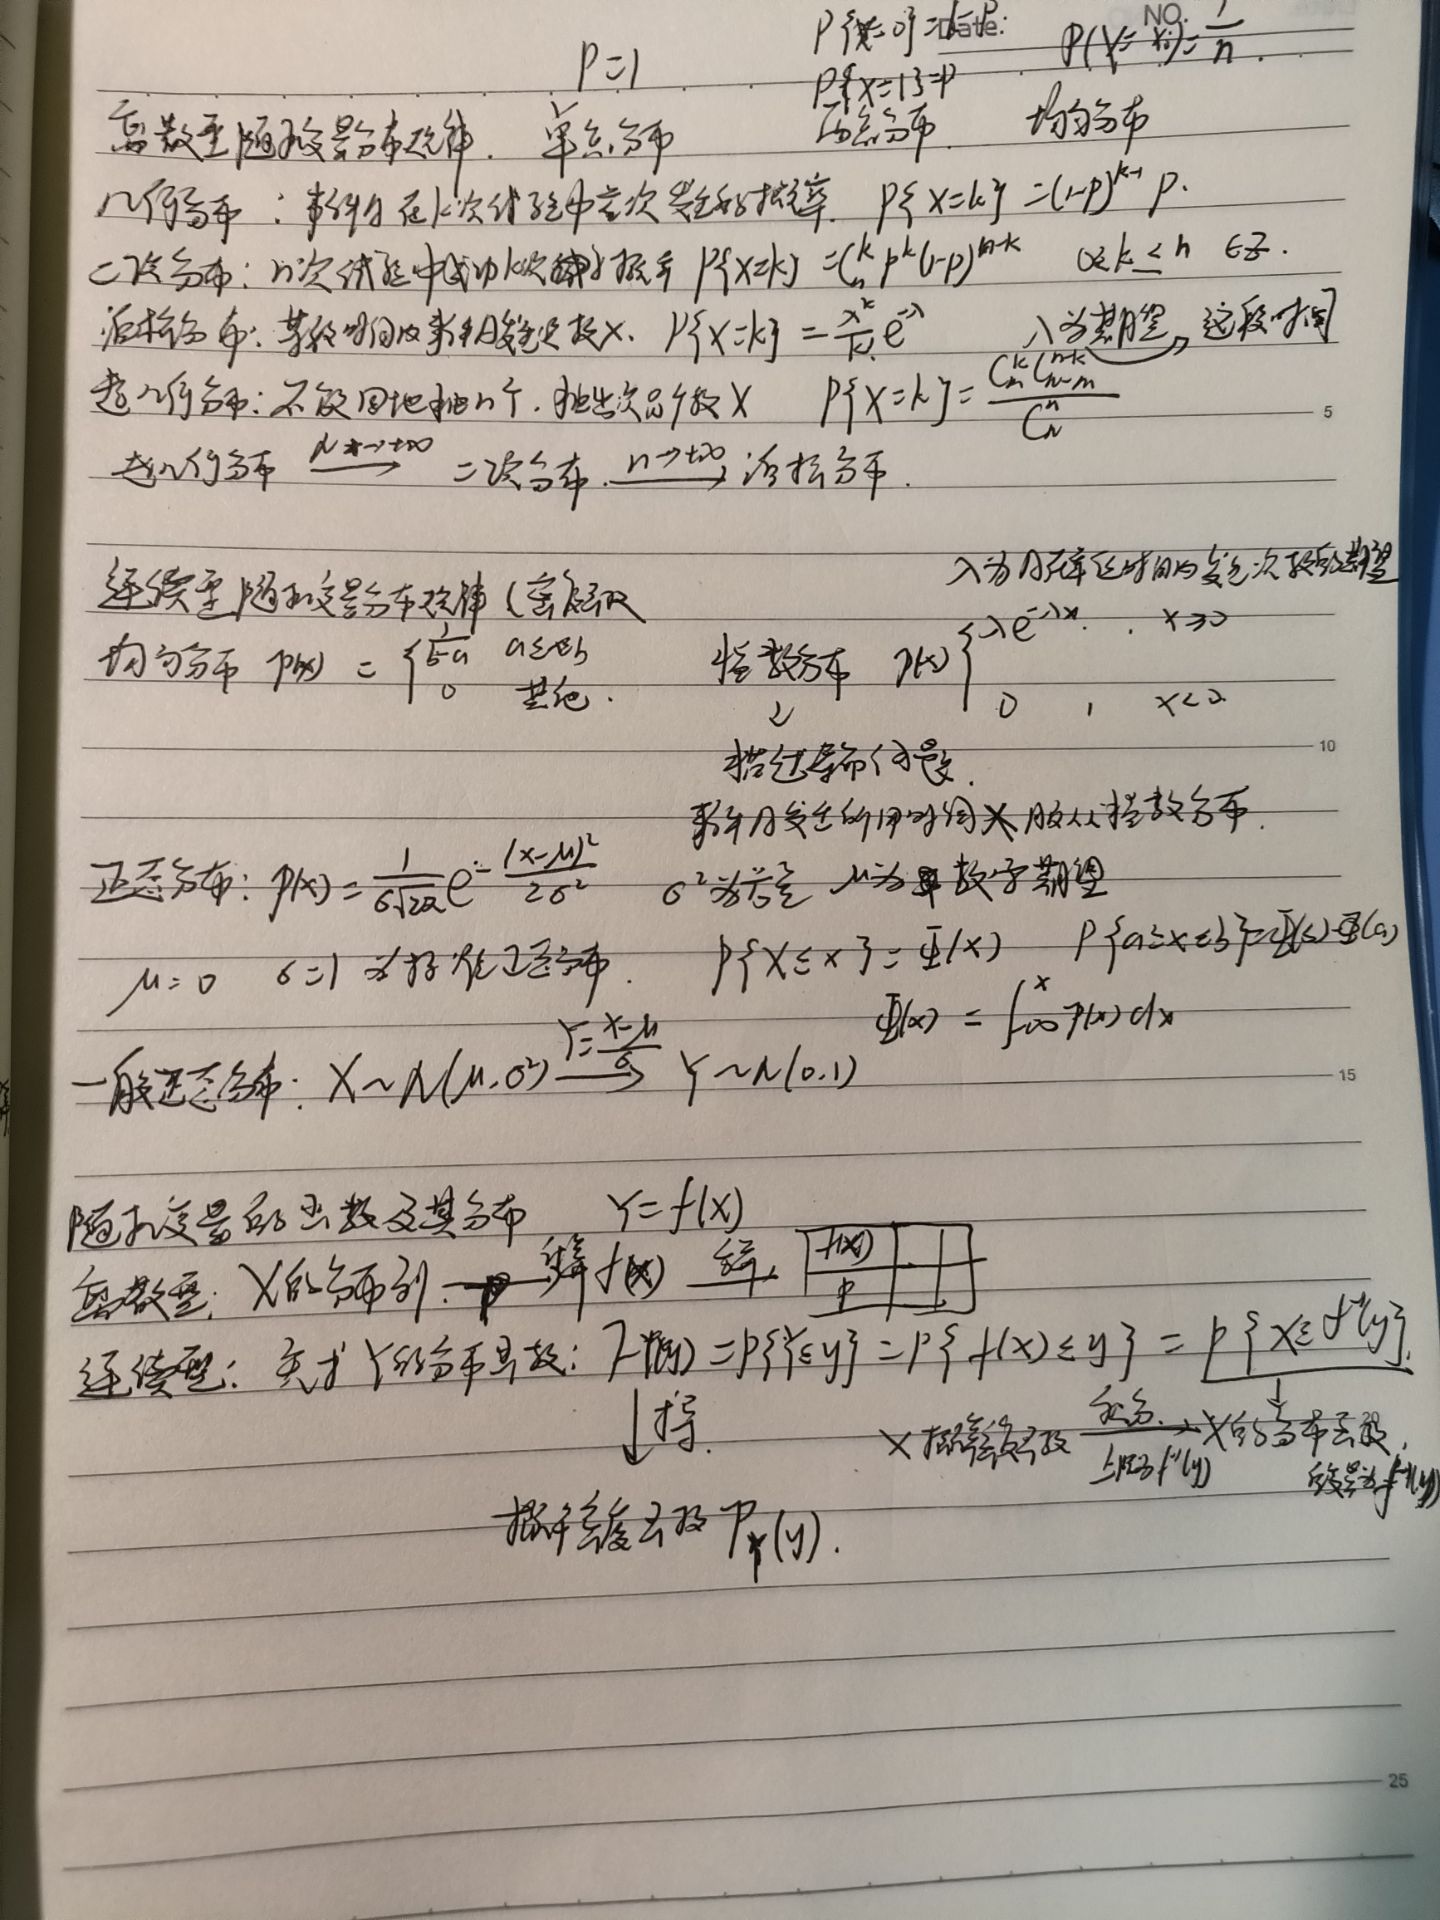 NO.
Date:
P{X=0}=1-P
P(X=xi)=1/n.
P=1
P{X=1}=P
离散型随机变量分布规律. 单点分布 两点分布 均匀分布
几何分布：事件A在k次试验中首次发生的概率. P{X=k}=(1-p)^{k-1} p.
二项分布：n次试验中成功k次概率 P{X=k}=C_n^k p^k(1-p)^{n-k} 0≤k≤n ∈Z.
泊松分布：某段时间内事件A发生次数X. P{X=k}=λ^k/k! e^{-λ} λ为期望 → 这段时间
超几何分布：不放回地抽n个. 抽出次品个数X P{X=k}=C_m^k C_{N-m}^{n-k}/C_N^n
5
超几何分布 N→+∞ → 二项分布. n→+∞ → 泊松分布.
λ为A在单位时间内发生次数的期望
连续型随机变量分布规律 (密度函数
均匀分布 p(x) = { 1/(b-a) a≤x≤b
0 其他.
指数分布 p(x) { λe^{-λx}. , x≥0
0 , x<0.
10
事件A发生所用时间X服从指数分布.
正态分布：p(x)=1/(σ√2π) e^{-(x-μ)²/2σ²} σ²为方差 μ为数学期望
μ=0 σ=1 为标准正态分布. P{X≤x}=Φ(x) P{a≤x≤b}=Φ(b)-Φ(a)
Φ(x) = ∫_{-∞}^x p(x)dx
一般正态分布：X~N(μ,σ²) Y=(X-μ)/σ → Y~N(0,1)
15
随机变量的函数及其分布 Y=f(x)
离散型：X的分布列. → 算f(x) → f(x) P
连续型：先求Y的分布函数：F_Y(y)=P{Y≤y}=P{f(x)≤y}=P{X≤f^{-1}(y)}.
↓求导.
X概率密度函数 积分. 上限为f^{-1}(y) → X的分布函数,
变量为f^{-1}(y)
概率密度函数 P_Y(y).
25